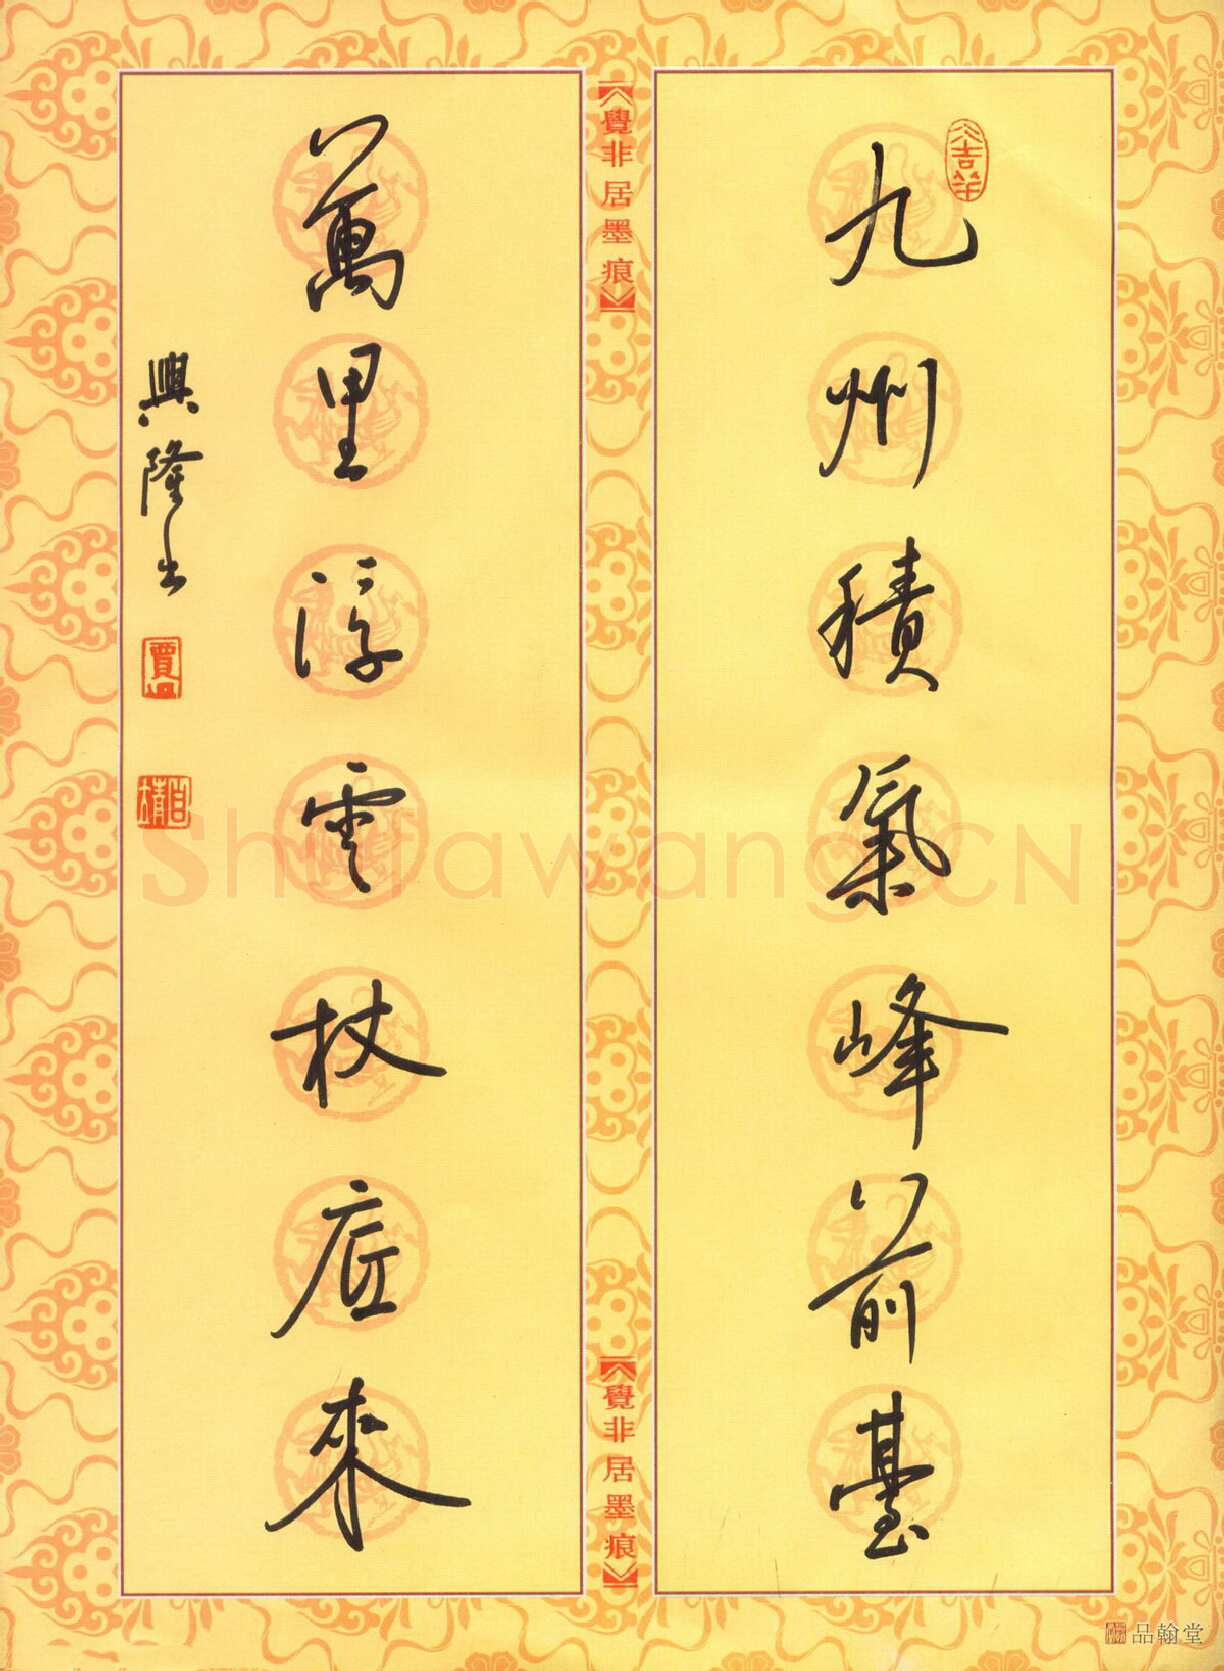 九州積氣峰前臺
萬里浮雲杖底來
興隆书
覺非居墨痕
覺非居墨痕
吉羊
賈
Shufawang.CN
品翰堂